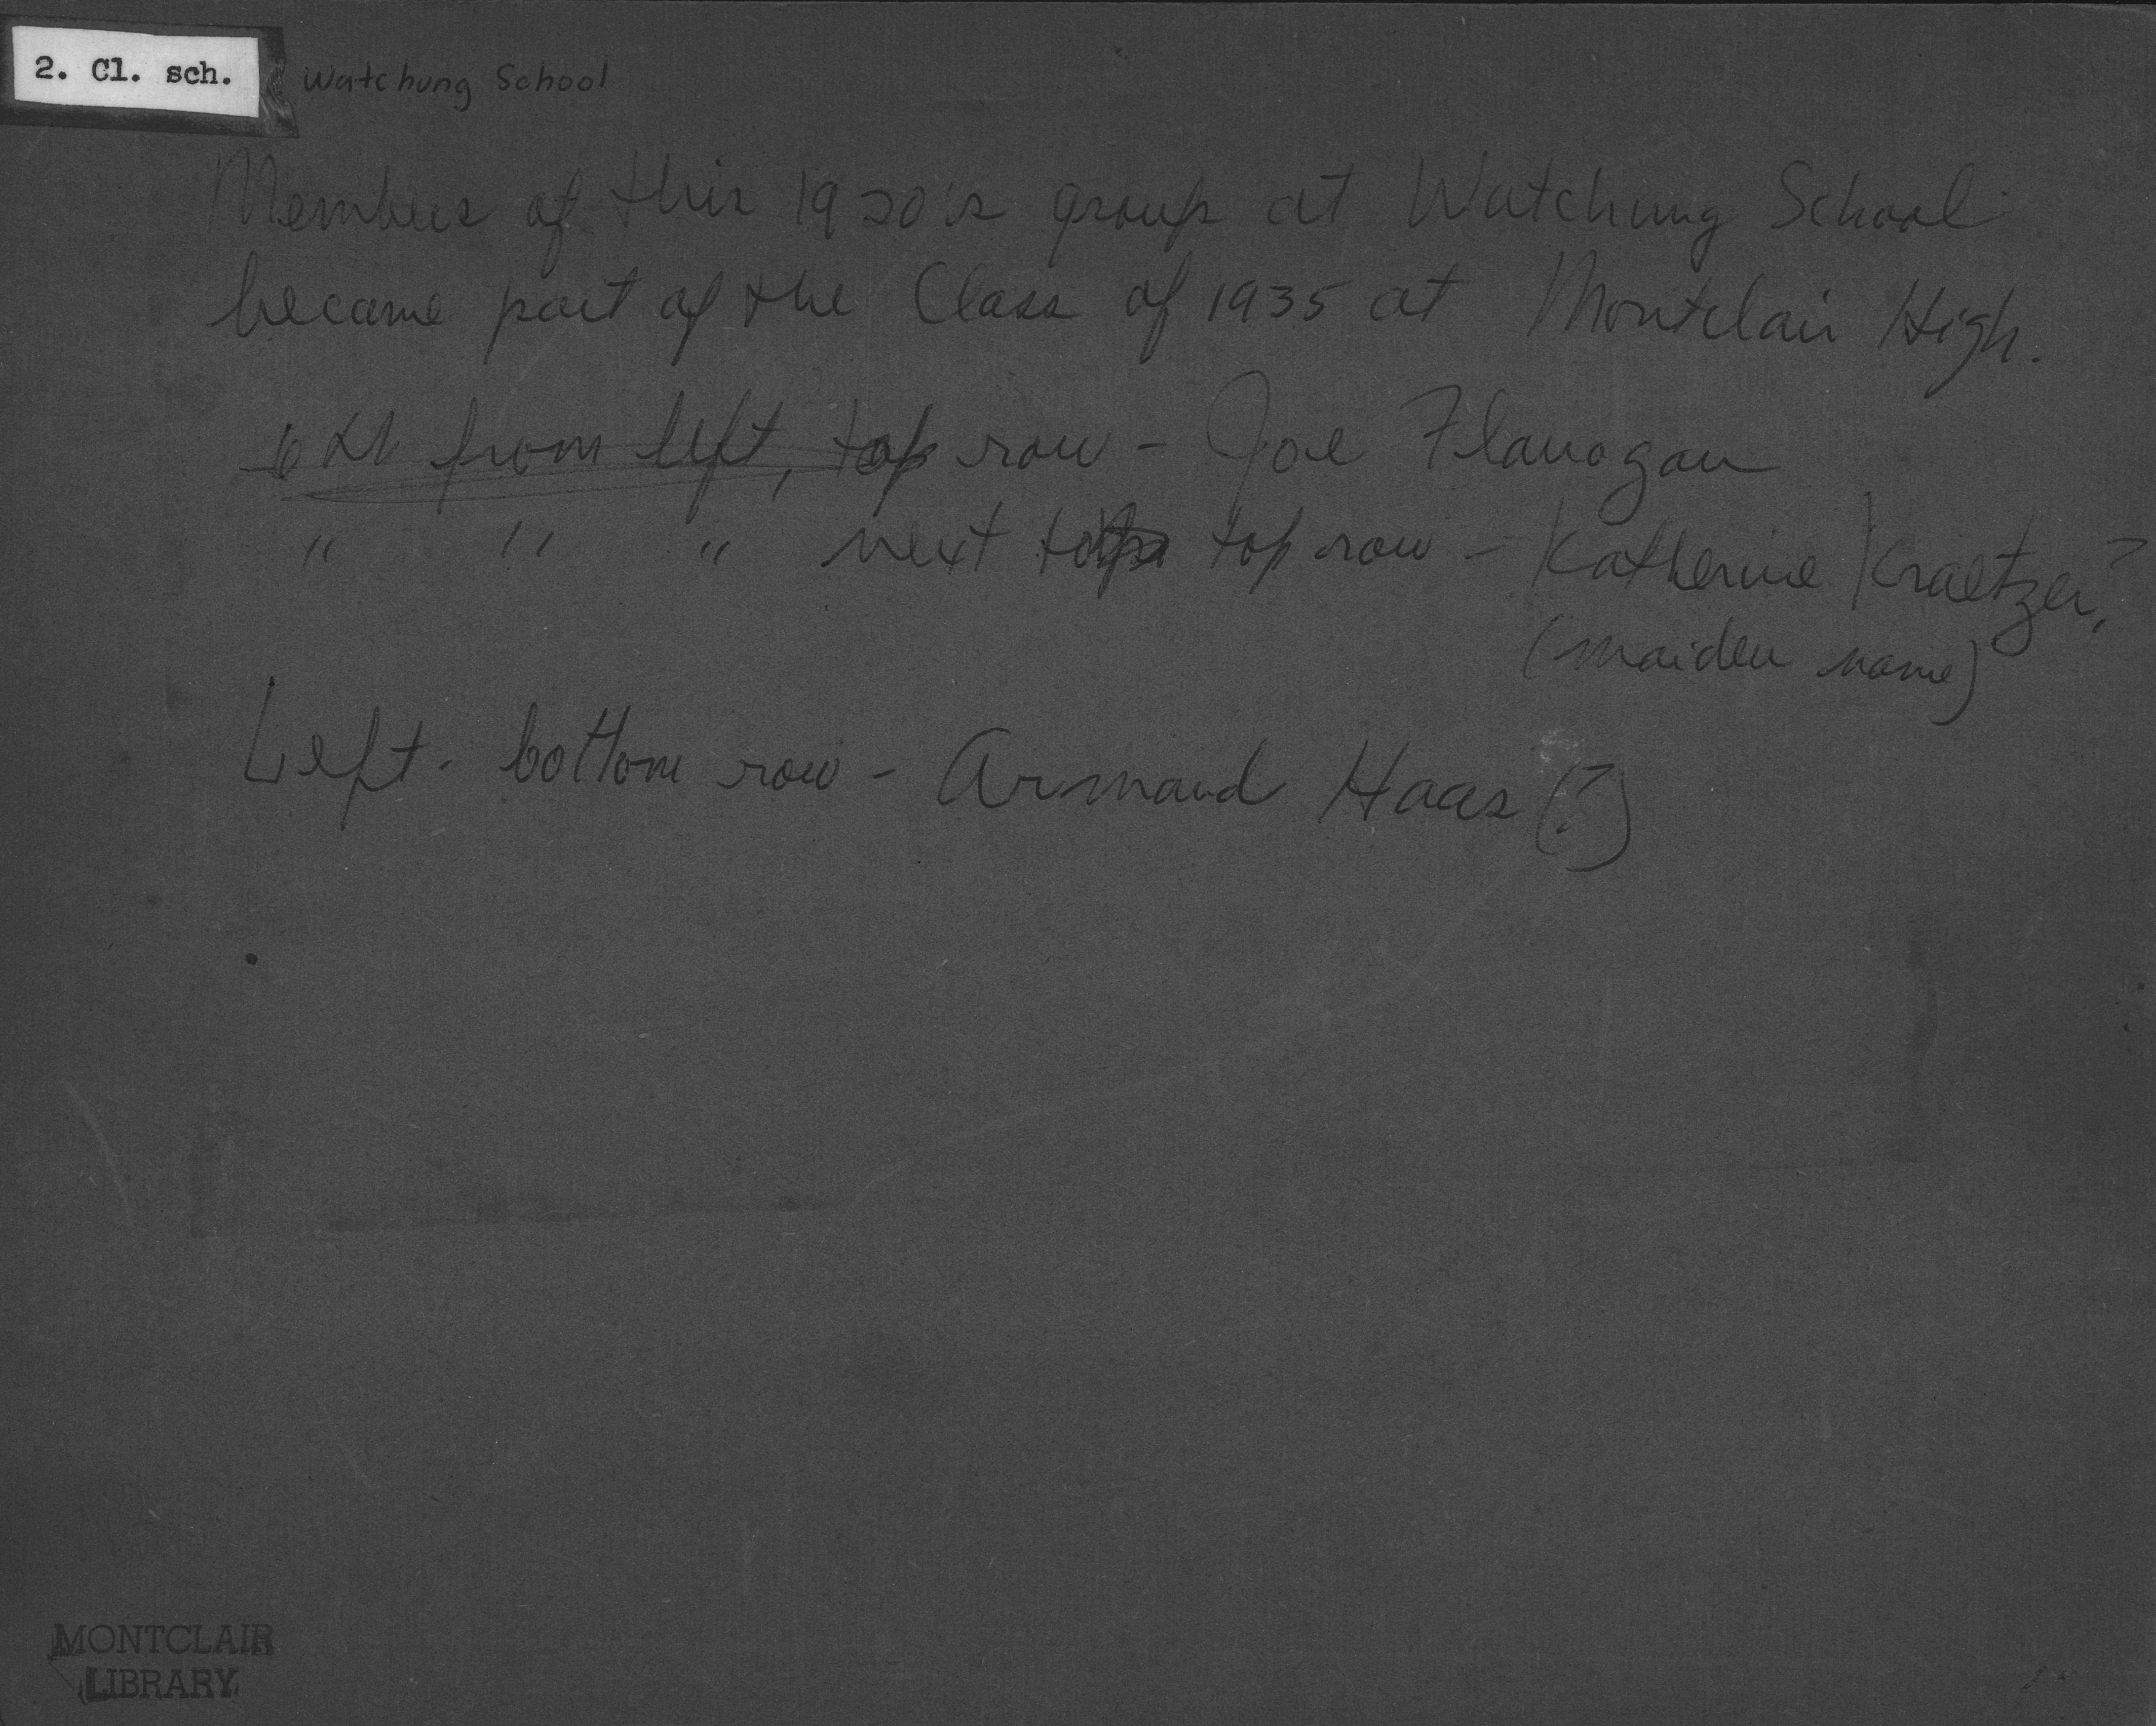 2. Cl. sch.
Watchung School
Members of this 1920's group at Watchung School
became part of the Class of 1935 at Montclair High.
6th from left, top row - Joe Flanagan
" " " next to top row - Katherine Kraetzer?
(maiden name)
Left - bottom row - Armand Haas (?)
MONTCLAIR
LIBRARY